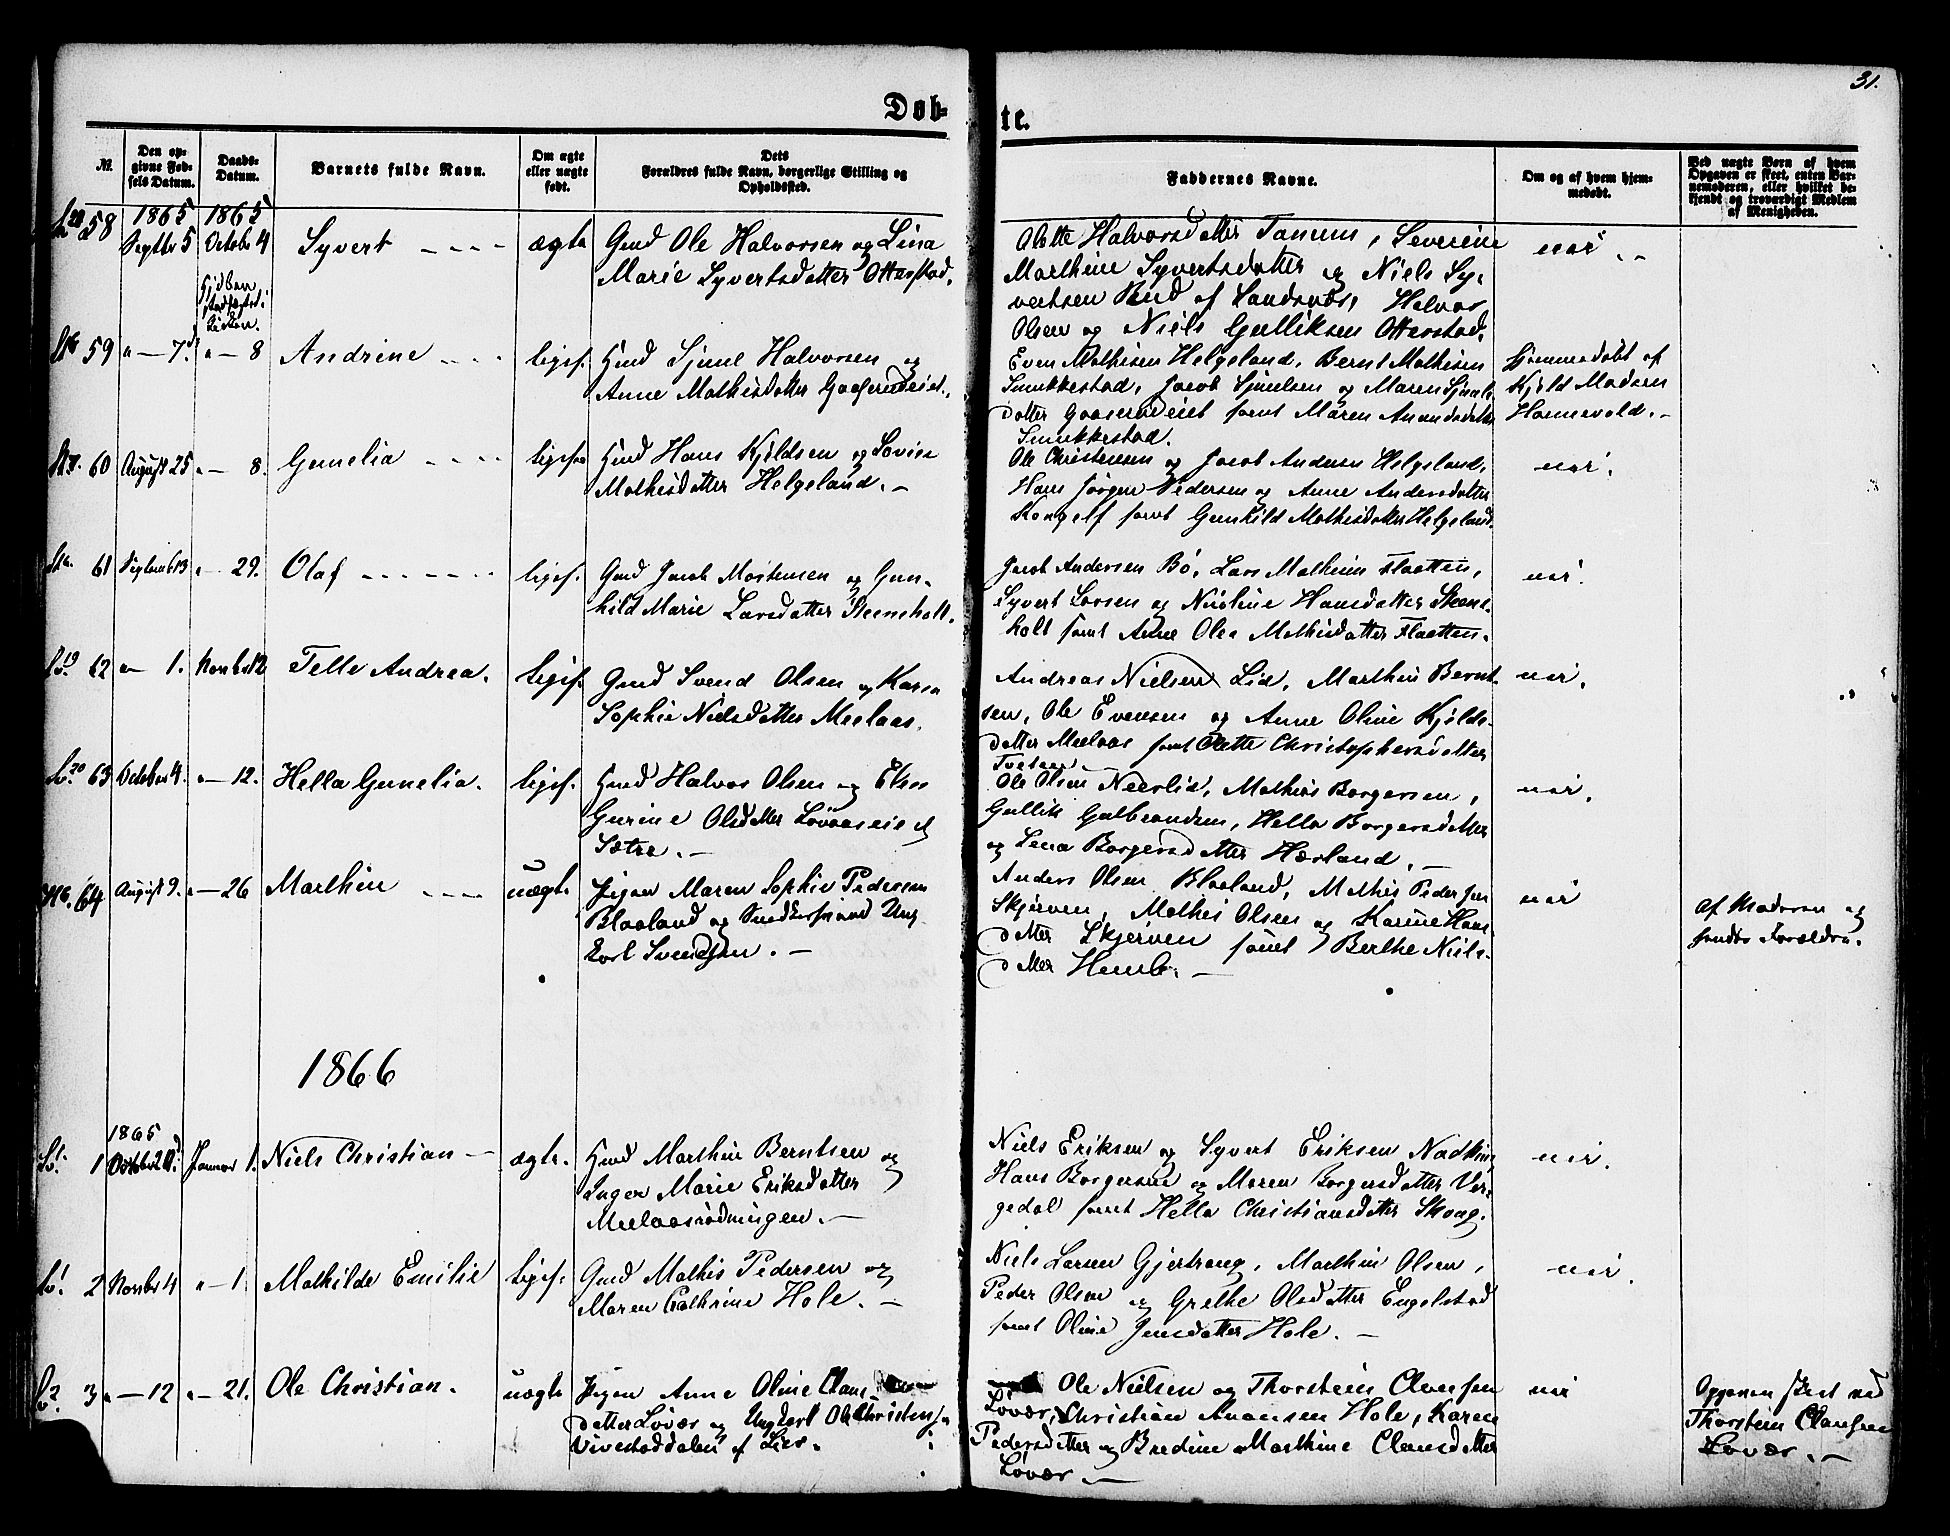 31.
Døb-
te.
№.
Den op-
givne Fød-
sels Datum.
Daabs-
Datum.
Barnets fulde Navn.
Om ægte
eller uægte
født.
Dets
Forældres fulde Navn, borgerlige Stilling og
Opholdssted.
Faddernes Navne.
Om og af hvem hjem-
medøbt.
Ved uægte Børn af hvem
Opgaven er skeet, enten Bar-
nemoderen, eller hvilket be-
kjendt og troværdigt Medlem
af Menigheden.
1865 1865
58 Septbr 5 October 4 Syvert ægte Gmd Ole Halvorsen og Lina
Marie Syvertsdatter Otterstad.
Olette Halvorsdatter Tanum, Severine
Marthine Syvertsdatter og Niels Sy-
vertsen Rud af Sandsvær, Halvor
Olsen og Niels Gulliksen Otterstad.
59 " — 7. " — 8 Andrine liges. Hmd Sjuul Halvorsen og
Anne Mathisdatter Gaaserudeiet.
Even Mathisen Helgeland, Bernt Mathisen
Smukkestad, Jacob Sjuulsen og Maren Sjuuls-
datter Gaaserudeiet samt Maren Amundsdatter
Smukkestad.
Hjemmedøbt af
Kjøld Madsen
Hannevold.
60 August 25 " — 8. Gunelia ligesaa Hmd Hans Kjøldsen og Lovise
Mathisdatter Helgeland.
Ole Christensen og Jacob Andersen Helgeland,
Hans Jørgen Pedersen og Anne Andersdatter
samt Gunhild Mathisdatter Helgeland.
61 Septemb 13 " — 29. Olaf ligesf. Gmd Jacob Mortensen og Gun-
hild Marie Larsdatter Steensholt.
Jacob Andersen Bø, Lars Mathisen Flaatten,
Syvert Larsen og Nicoline Hansdatter Steens-
holt samt Anne Olea Mathisdatter Flaatten.
62 " — 1. Novbr 12 Telle Andrea. ligesf. Gmd Svend Olsen og Karen
Sophie Nielsdatter Meelaas.
Andreas Nielsen Lid, Marthin Bernt-
sen, Ole Evensen og Anne Oline Kjølds-
datter Meelaas samt Olette Christophersdatter
63 October 4. " — 12. Hella Gunelia. ligesf. Hmd Halvor Olsen og Elen
Gurine Olsdatter Løvaaseie
Sætre.
Ole Olsen Neerlid, Mathias Borgersen,
Gullik Gulbrandsen, Hella Borgersdatter
og Lena Borgersdatter Hærland.
64 August 9. " — 26 Marthin uægte Pigen Maren Sophie Pedersen
Blaaland og Snedkersvend Ung-
karl Svendsen.
Anders Olsen Blaaland, Mathis Pedersen
Skjerven, Mathis Olsen og Karine Hans-
datter Skjerven samt Berthe Niels-
datter
nei
Af Moderen og
hendes Forældre.
1866
1865
1 October Januar 1. Niels Christian ægte. Hmd Marthin Berntsen og
Inger Marie Eriksdatter
Meelaasrødningen.
Niels Eriksen og Syvert Eriksen
Hans Borgersen og Maren Borgersdatter Ver-
gedal samt Hella Christiansdatter Skoug.
nei.
2 Novbr 4 " — 1. Mathilde Emilie ligesf. Gmd Mathis Pedersen og
Maren Cathrine Hole.
Niels Larsen Gjertraug, Marthin Olsen,
Peder Olsen og Grethe Olsdatter Engelstad
samt Oline Jensdatter Hole.
nei.
3 " — 12 " — 21. Ole Christian. uægte Pigen Anne Oline Claus-
datter Løvær og Ungkarl Ole Christensen
Vivestaddalen af Lier.
Ole Nielsen og Thorstein Clausen
Løvær, Christian Svensen Hole, Karen
Pedersdatter og Bredine Marthine Clausdatter
Løvær.
nei
Opgaven skeet ved
Thorstein Clausen
Løvær.